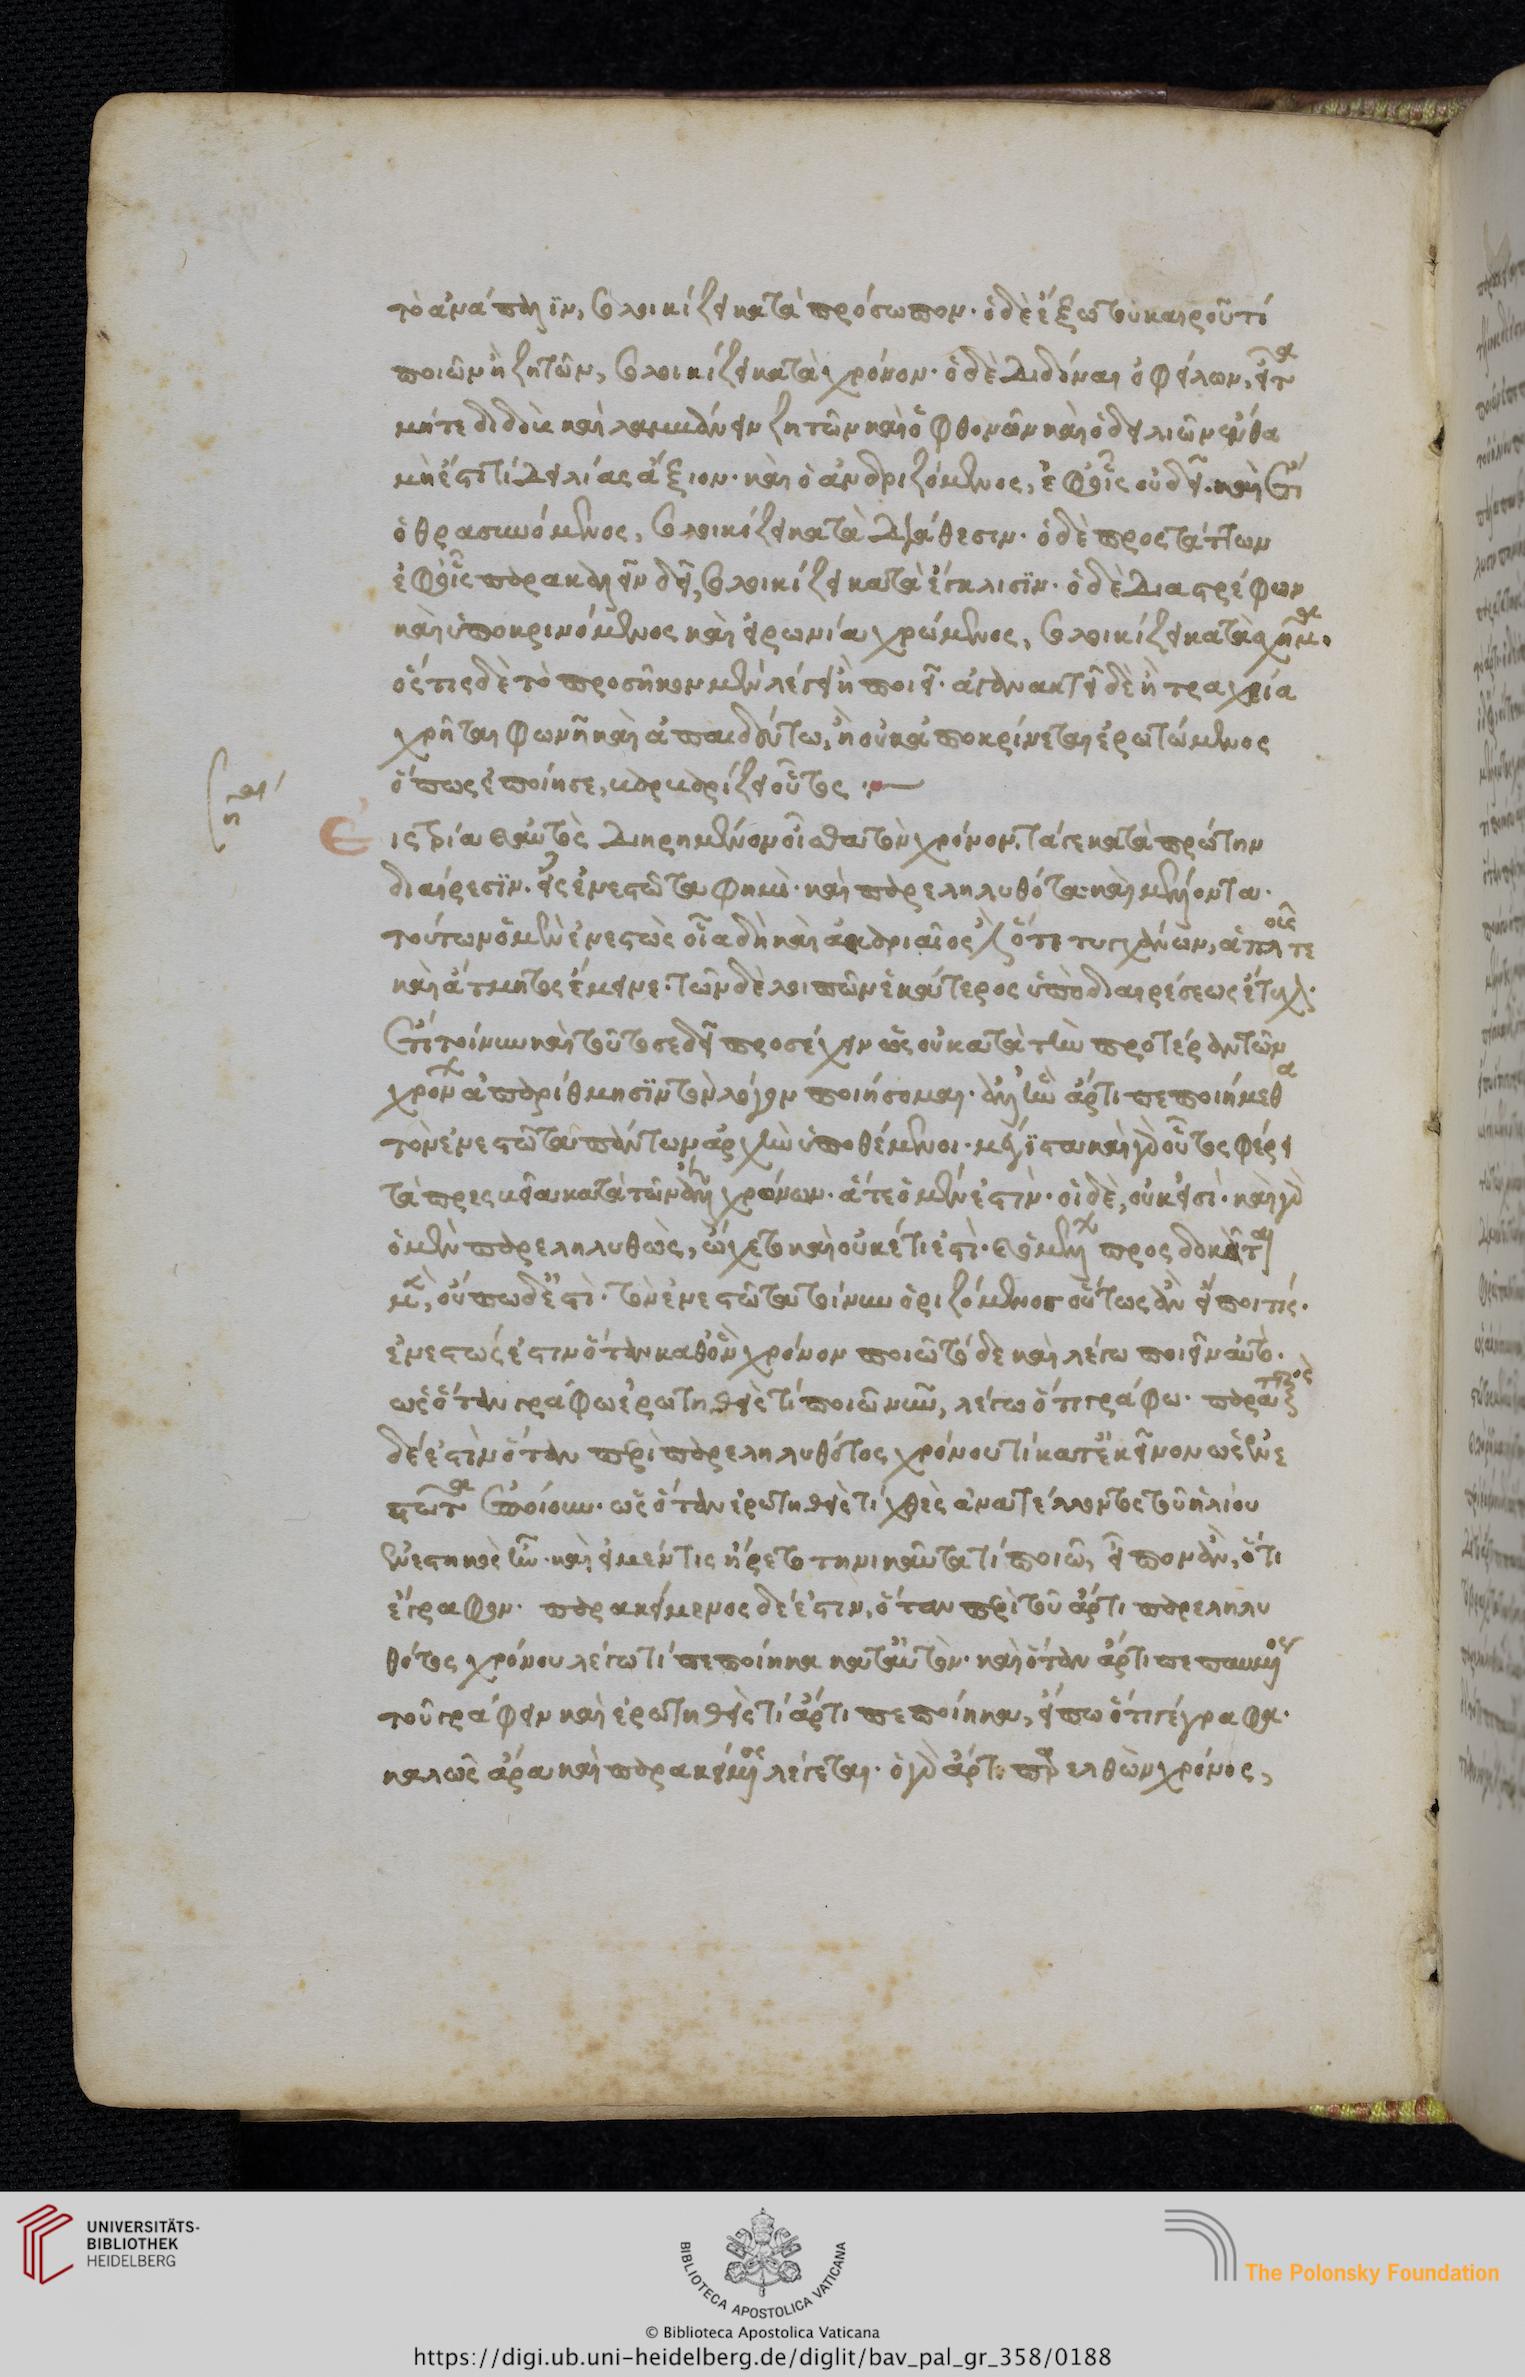 τὸ ἀνάπαλιν, σολοικίζει κατὰ πρόσωπον· ὁ δὲ ἔξω τοῦ καιροῦ τί
ποιῶν ἢ ζητῶν, σολοικίζει κατὰ χρόνον· ὁ δὲ διδόναι ὀφείλων, εἶτα
μήτε διδοὺς καὶ λαμβάνειν ζητῶν καὶ ὁ φθονῶν καὶ ὁ δειλιῶν ἔνθα
μὴ ἔστι τί δειλίας ἄξιον· καὶ ὁ ἀνδριζόμενος, ἐφ' οἷς οὐ δεῖ· καὶ ἔτι
ὁ θρασυνόμενος, σολοικίζει κατὰ διάθεσιν· ὁ δὲ προστάττων
ἐφ' οἷς παρακαλεῖν δεῖ, σολοικίζει κατὰ ἔγκλισιν· ὁ δὲ διαστρέφων
καὶ ὑποκρινόμενος καὶ εἰρωνία χρώμενος, σολοικίζει κατὰ σχῆμα·
ὅστις δὲ τὸ προσῆκον μὲν λέγει ἢ ποιεῖ· ἀγανακτεῖ δὲ ἢ τραχεία
χρῆται φωνῆ καὶ ἀπαιδεύτω, ἢ οὐκ ἀποκρίνεται ἐρωτώμενος
ὅπως ἐποίησε, βαρβαρίζει οὗτος
Εἰς τρία ταῦτα διηρημένον οἶσθα τὸν χρόνον, τά γε κατὰ πρώτην
διαίρεσιν· εἰς ἐνεστῶτα φημὶ· καὶ παρεληλυθότα· καὶ μέλλοντα·
τούτων ὁ μὲν ἐνεστὼς οἷα δὴ καὶ ἀκαριαῖος ὅτι τυγχάνων, ἁπλοῦς τε
καὶ ἄτμητος ἔμεινε· τῶν δὲ λοιπῶν ἑκάτερος ὑποδιαιρέσεως ἔτυχε·
ἔτι τοίνυν καὶ τοῦτό σε δεῖ προσέχειν ὡς οὐ κατὰ τὴν προτέραν τῶν
χρόνων ἀπαρίθμησιν τὸν λόγον ποιήσομαι· ἀλλ' ἣν ἄρτι πεποιήμεθα
τὸν ἐνεστῶτα πάντων ἀρχὴν ὑποθέμενοι· μάλιστα καὶ γὰρ οὗτος φέρει
τὰ πρεσβεῖα κατὰ τῶν ἄλλων χρόνων· ἅτε ὁ μὲν ἐστὶν· οἱ δὲ, οὐκ εἰσί· καὶ γὰρ
ὁ μὲν παρεληλυθὼς, ᾤχετο καὶ οὐκέτι ἐστὶ· ὁ μέλλων προσδοκᾶται
μὲν, οὔπω δ' ἔστι· τὸν ἐνεστῶτα τοίνυν ὁριζόμενος οὕτως ἂν εἴποι τίς·
ἐνεστώς ἐστιν ὅταν καθ' ὃν χρόνον ποιῶ τόδε καὶ λέγω ποιεῖν αὐτό·
ὡς ὅταν γράφω ἐρωτηθεὶς τί ποιῶ νῦν, λέγω ὅτι γράφω· παρατατικὸς
δέ ἐστιν ὅταν περὶ παρεληλυθότος χρόνου τί κατ' ἐκεῖνον ὡς ἐνε
στῶτα ἐποίουν· ὡς ὅταν ἐρωτηθεὶς τί χθὲς ἀνατέλλοντος τοῦ ἡλίου
ἐνεστηκὸς ἦν· καὶ εἰ μέν τις ἤρετο τηνικαῦτα τί ποιῶ, εἶπον ἂν, ὅτι
ἔγραφον· παρακείμενος δέ ἐστιν, ὅταν περὶ τοῦ ἄρτι παρεληλυ
θότος χρόνου λέγω τί πεποίηκα κατ' αὐτὸν· καὶ ὅταν ἄρτι πεπαυμένος
τοῦ γράφειν καὶ ἐρωτηθεὶς τί ἄρτι πεποίηκα, εἴπω ὅτι γέγραφα·
καλῶς ἄρα καὶ παρακείμενος λέγεται· ὁ γὰρ ἄρτι παρελθὼν χρόνος,
UNIVERSITÄTS-
BIBLIOTHEK
HEIDELBERG
BIBLIOTECA APOSTOLICA VATICANA
The Polonsky Foundation
© Biblioteca Apostolica Vaticana
https://digi.ub.uni-heidelberg.de/diglit/bav_pal_gr_358/0188